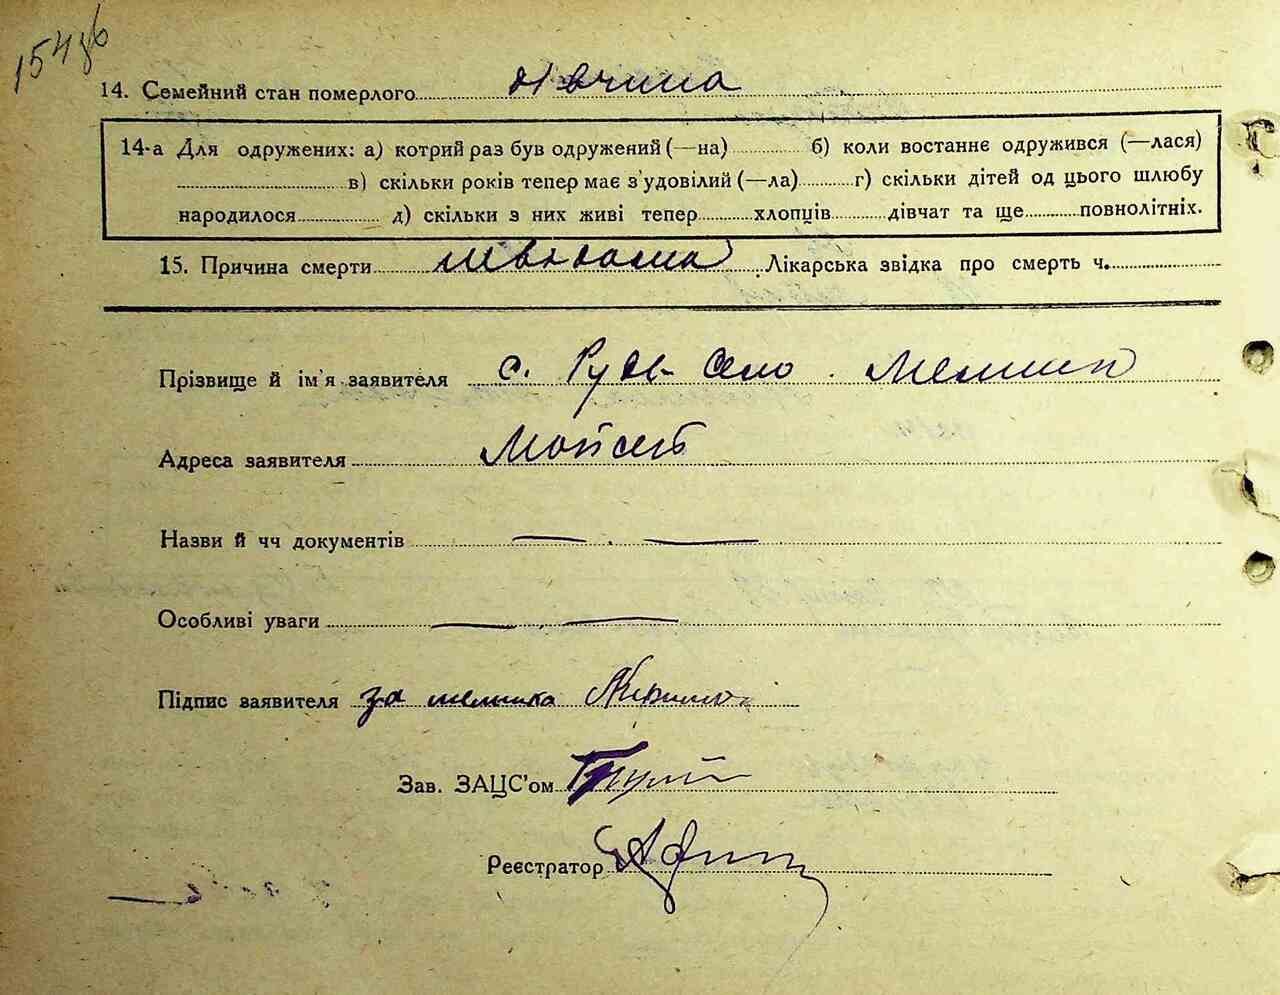 154 зв
14. Семейний стан померлого дівчина
14-а Для одружених: а) котрий раз був одружений (—на) б) коли востаннє одружився (—лася)
в) скільки років тепер має з'удовілий (—ла) г) скільки дітей од цього шлюбу
народилося д) скільки з них живі тепер хлопців дівчат та ще повнолітніх.
15. Причина смерти невідома Лікарська звідка про смерть ч.
Прізвище й ім'я заявителя с. Руде Село. Мельник
Адреса заявителя Мойсей
Назви й чч документів — . —
Особливі уваги — . —
Підпис заявителя за мельника
Зав. ЗАЦС'ом
Реєстратор